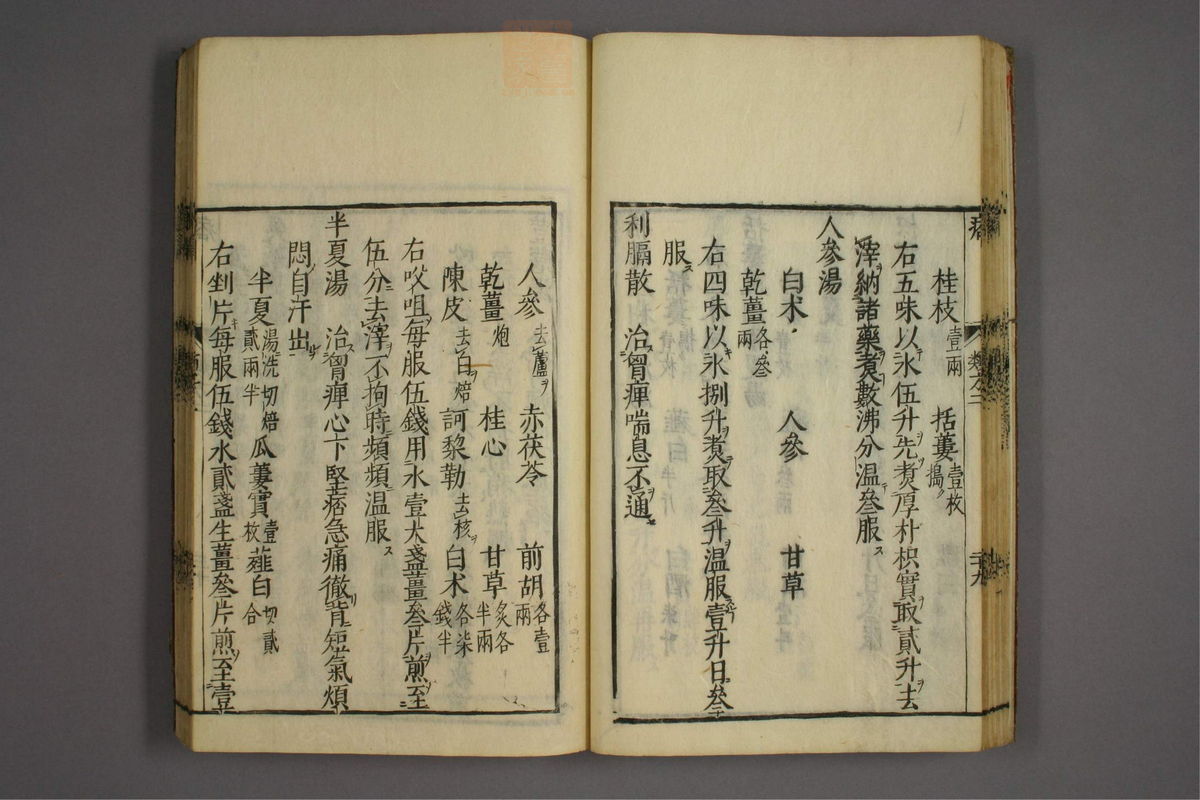 桂枝壹兩　括蔞壹枚搗
右五味以水伍升先煑厚朴枳實取貳升去
滓納諸藥煑數沸分温叁服
人參湯
白术　人參　甘草
乾薑各叁兩
右四味以水捌升煑取叁升温服壹升日叁
服
利膈散　治胷痺喘息不通
人參去蘆　赤茯苓　前胡各壹兩
乾薑炮　桂心　甘草炙各半兩
陳皮去白焙　訶黎勒去核　白术各柒錢半
右㕮咀每服伍錢用水壹大盞薑叁片煎至
伍分去滓不拘時頻頻温服
半夏湯　治胷痺心下堅痞急痛徹背短氣煩
悶自汗出
半夏湯洗切焙貳兩半　瓜蔞實壹枚　薤白切貳合
右剉片每服伍錢水貳盞生薑叁片煎至壹